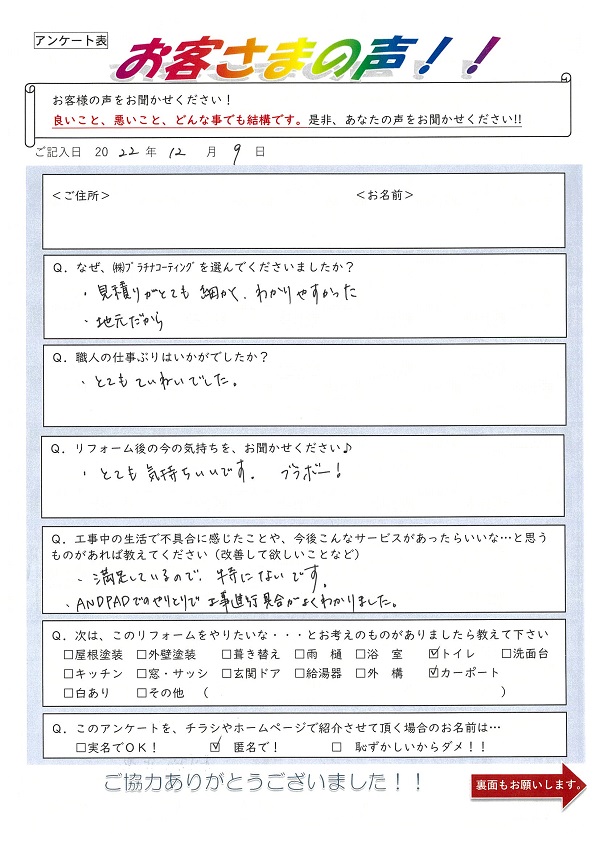 アンケート表
お客さまの声！！
お客様の声をお聞かせください！
良いこと、悪いこと、どんな事でも結構です。是非、あなたの声をお聞かせください!!
ご記入日 2022年 12月 9日
＜ご住所＞ ＜お名前＞
Q．なぜ、㈱ﾌﾟﾗﾁﾅｺｰﾃｨﾝｸﾞを選んでくださいましたか？
・見積りがとても細かく、わかりやすかった
・地元だから
Q．職人の仕事ぶりはいかがでしたか？
・とてもていねいでした。
Q．リフォーム後の今の気持ちを、お聞かせください♪
・とても気持ちいいです。 ブラボー！
Q．工事中の生活で不具合に感じたことや、今後こんなサービスがあったらいいな…と思う
ものがあれば教えてください（改善して欲しいことなど）
・満足しているので、特にないです。
・ANDPADでのやりとりで工事進行具合がよくわかりました。
Q．次は、このリフォームをやりたいな・・・とお考えのものがありましたら教えて下さい
□屋根塗装 □外壁塗装 □葺き替え □雨 樋 □浴 室 ☑トイレ □洗面台
□キッチン □窓・サッシ □玄関ドア □給湯器 □外 構 ☑カーポート
□白あり □その他 （ ）
Q．このアンケートを、チラシやホームページで紹介させて頂く場合のお名前は…
□実名でOK！ ☑ 匿名で！ □ 恥ずかしいからダメ！！
ご協力ありがとうございました！！
裏面もお願いします。